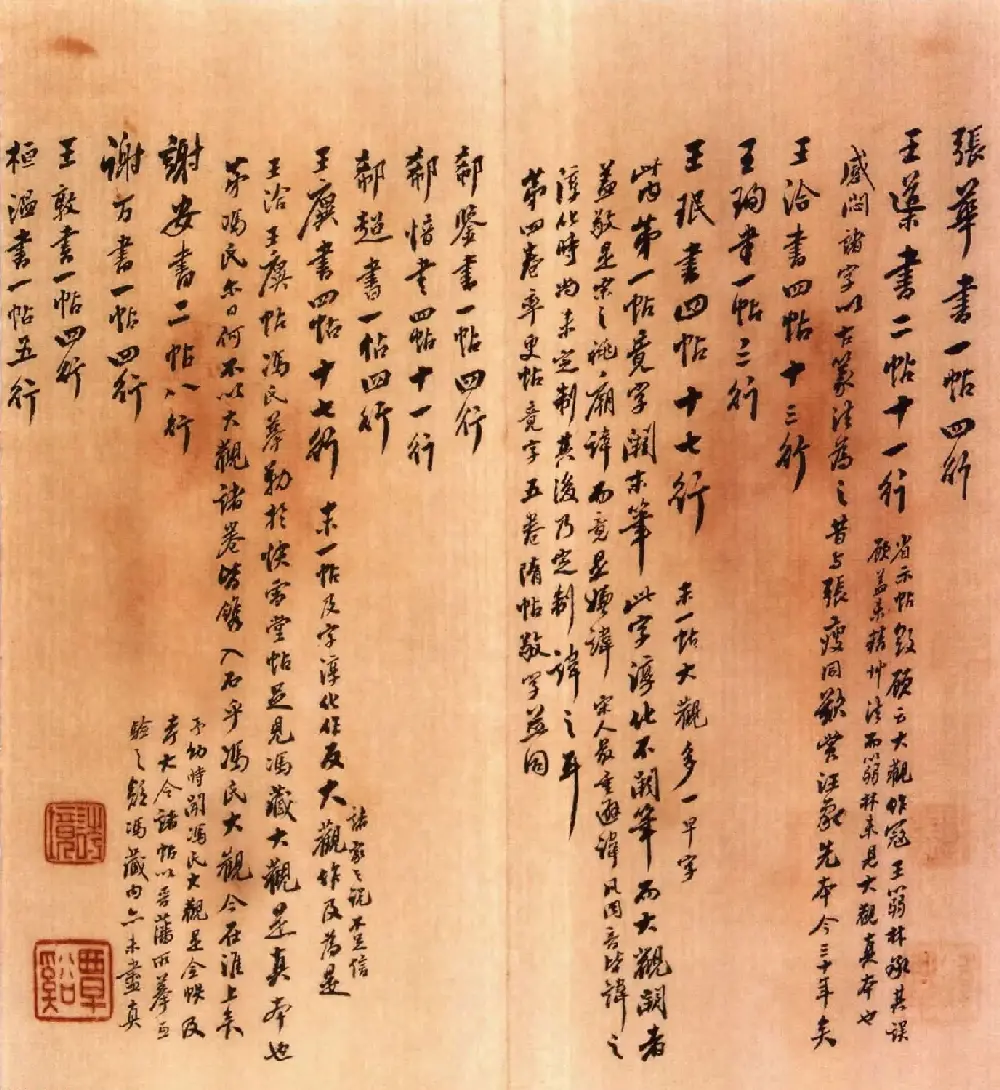 張華書一帖四行
王薈書二帖十一行
省示帖毀顧云大觀作冠王篛林疑其誤
顧蓋未精艸法而篛林未見大觀真本也
感悶諸字以古篆法為之昔與張瘦同歡賞汪氣先本今三十年矣
王洽書四帖十三行
王珣書一帖三行
王珉書四帖十七行 末一帖大觀多一早字
此內第一帖竟字闕末筆此字淳化不闕筆而大觀闕者
蓋敬是宋之祧廟諱而竟是嫌諱宋人最重避諱凡同音皆諱之
淳化時尚未定制其後乃定制諱之耳
第四卷率更帖竟字五卷隋帖敬字並同
郗鑒書一帖四行
郗愔書四帖十一行
郗超書一帖四行
王廙書四帖十七行 末一帖及字淳化作反大觀作及為是
諸家之說不足信
王洽王廙帖馮氏摹勒於快雪堂帖足見馮藏大觀是真本也
第馮氏當日何不以大觀諸卷皆鐫入石乎馮氏大觀今在淮上矣
予幼時聞馮氏大觀是全帙及
考大令諸帖以菩薩所摹
驗之疑馮藏內亦未盡真
謝安書二帖八行
謝萬書一帖四行
王敦書一帖四行
桓溫書一帖五行
詩境
覃谿